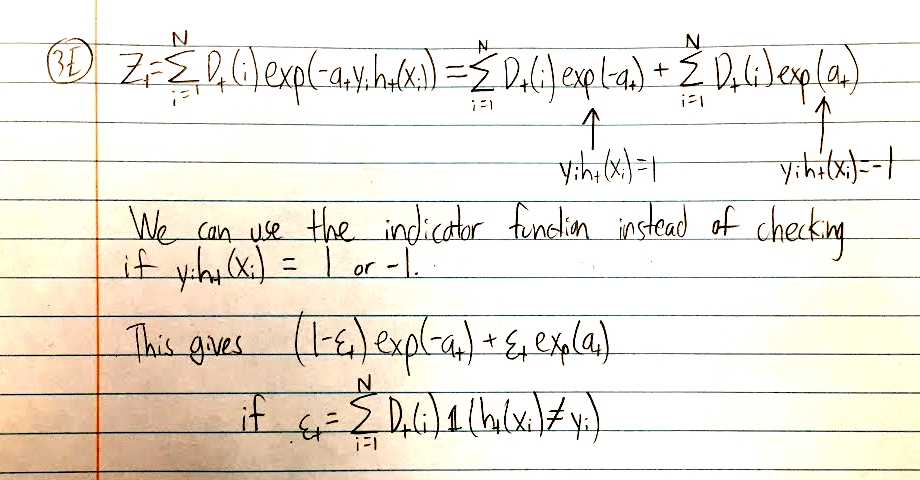 3E Z_t = Σ_{i=1}^{N} D_t(i) exp(-a_t y_i h_t(x_i)) = Σ_{i=1}^{N} D_t(i) exp(-a_t) + Σ_{i=1}^{N} D_t(i) exp(a_t)
↑ ↑
y_i h_t(x_i) = 1 y_i h_t(x_i) = -1
We can use the indicator function instead of checking
if y_i h_t(x_i) = 1 or -1.
This gives (1-ε_t) exp(-a_t) + ε_t exp(a_t)
if ε_t = Σ_{i=1}^{N} D_t(i) 𝟙(h_t(x_i) ≠ y_i)